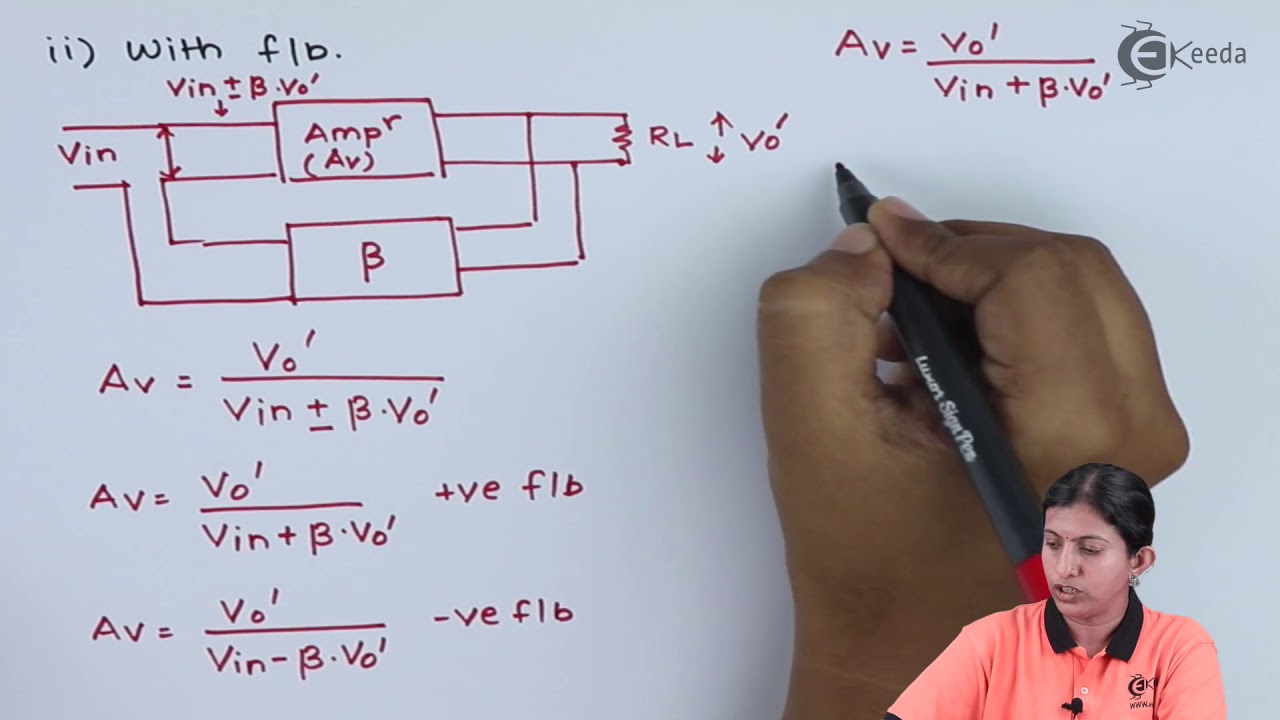 ii) With f/b.
Vin ± β.Vo'
Vin
Ampr
(Av)
RL
Vo'
β
Av = Vo' / Vin ± β.Vo'
Av = Vo' / Vin + β.Vo' +ve f/b
Av = Vo' / Vin - β.Vo' -ve f/b
Av = Vo' / Vin + β.Vo'
EKeeda
Luxor Sign Pen